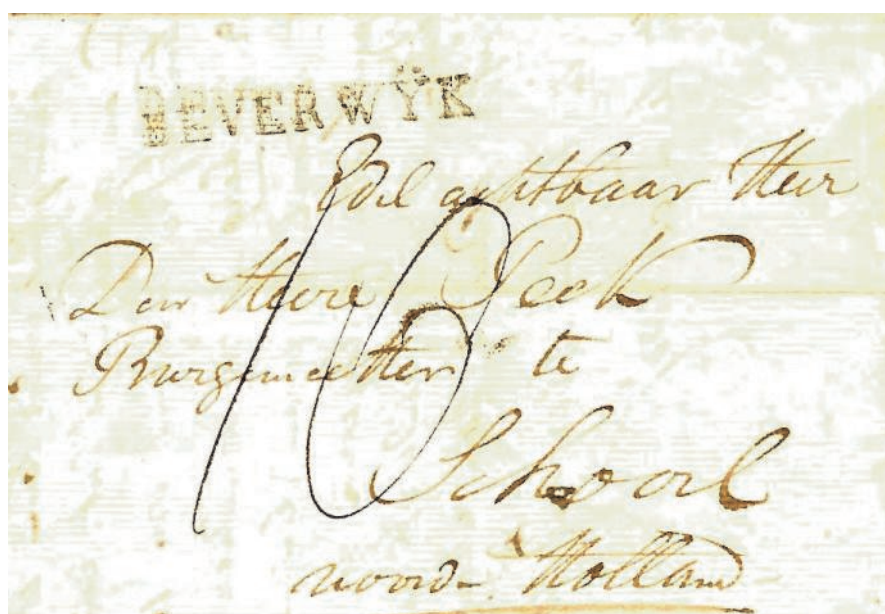 BEVERWŸK
Edel achtbaar Heer
Den Heere Peek
Burgemeester te
Schoorl
noord-Holland
16